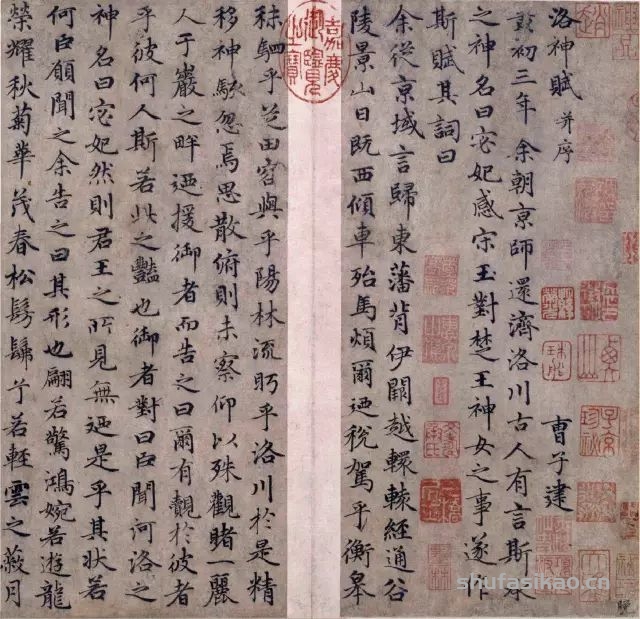 洛神賦 并序 曹子建
初三年余朝京師還濟洛川古人有言斯水
之神名曰宓妃感宋玉對楚王神女之事遂作
斯賦其詞曰
余從京域言歸東藩背伊闕越轘轅經通谷
陵景山日既西傾車殆馬煩爾迺稅駕乎衡皋
嘉慶御覽之寶
秣駟乎芝田容與乎陽林流眄乎洛川於是精
移神駭忽焉思散俯則未察仰以殊觀睹一麗
人于巖之畔迺援御者而告之曰爾有覿於彼者
乎彼何人斯若此之豔也御者對曰臣聞河洛之
神名曰宓妃然則君王之所見無迺是乎其狀若
何臣願聞之余告之曰其形也翩若驚鴻婉若遊龍
榮耀秋菊華茂春松髣髴兮若輕雲之蔽月
shufasikao.cn